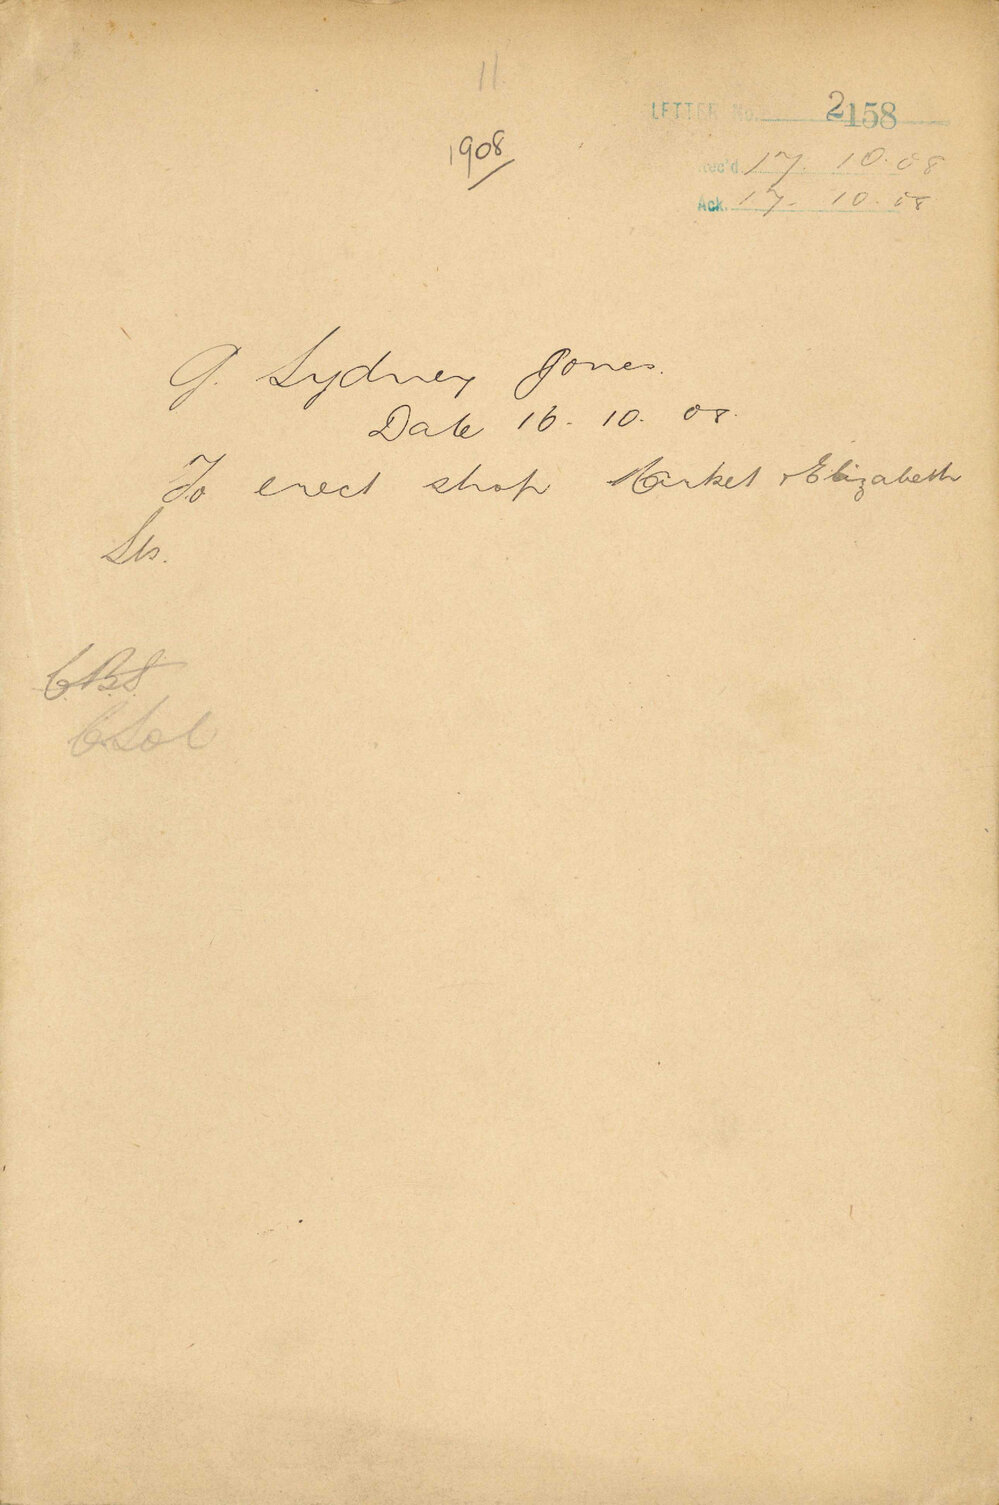 11.
LETTER No. 2158
1908/
Rec'd. 17. 10. 08
Ack. 17. 10. 08
G. Sydney Jones.
Date 16. 10. 08.
To erect shop Market & Elizabeth
Sts.
C.B.S
C Sol